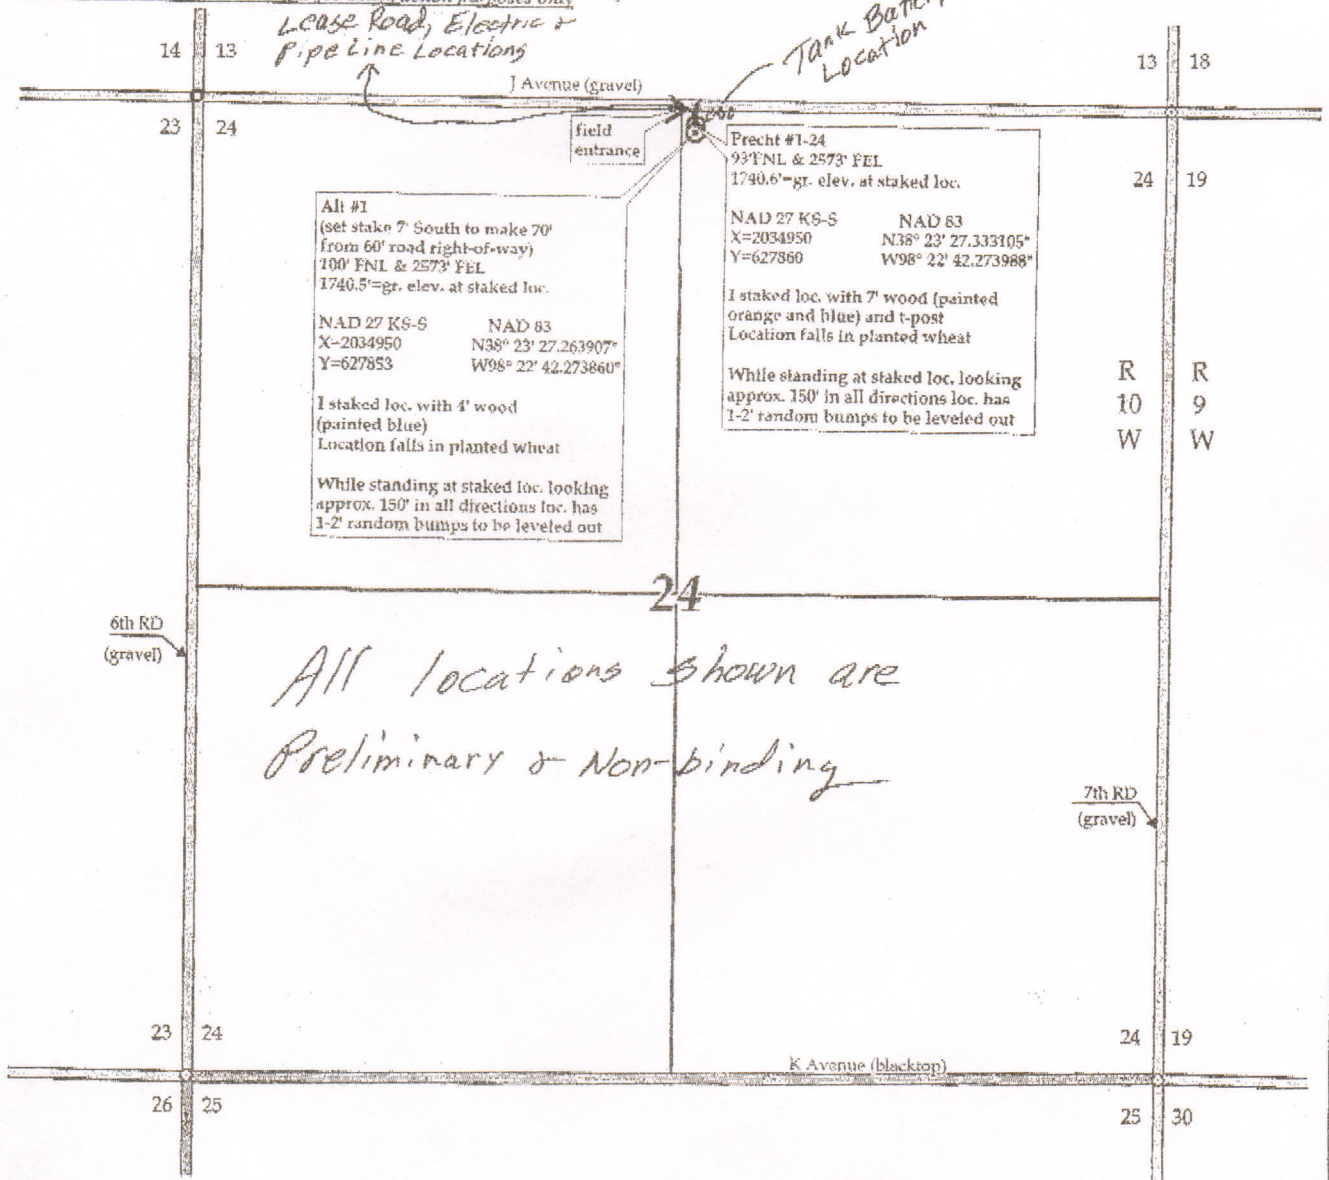 purposes only
Lease Road, Electric &
Pipe Line Locations
Tank Battery
Location
14 13
13 18
J Avenue (gravel)
23 24
24 19
field
entrance
Precht #1-24
93'FNL & 2573' FEL
1740.6'=gr. elev. at staked loc.
NAD 27 KS-S NAD 83
X=2034950 N38° 23' 27.333105"
Y=627860 W98° 22' 42.273988"
I staked loc. with 7' wood (painted
orange and blue) and t-post
Location falls in planted wheat
While standing at staked loc. looking
approx. 150' in all directions loc. has
1-2' random bumps to be leveled out
Alt #1
(set stake 7' South to make 70'
from 60' road right-of-way)
100' FNL & 2573' FEL
1740.5'=gr. elev. at staked loc.
NAD 27 KS-S NAD 83
X=2034950 N38° 23' 27.263907"
Y=627853 W98° 22' 42.273860"
I staked loc. with 4' wood
(painted blue)
Location falls in planted wheat
While standing at staked loc. looking
approx. 150' in all directions loc. has
1-2' random bumps to be leveled out
R R
10 9
W W
24
6th RD
(gravel)
All locations shown are
Preliminary & Non-binding
7th RD
(gravel)
23 24
24 19
K Avenue (blacktop)
26 25
25 30